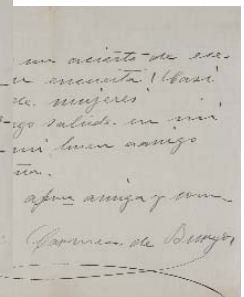 un acierto de ese.
encuesta! Casi
de mujeres
go saluda en mi
mi buen amigo
ña.
afma amiga y com-
Carmen de Burgos